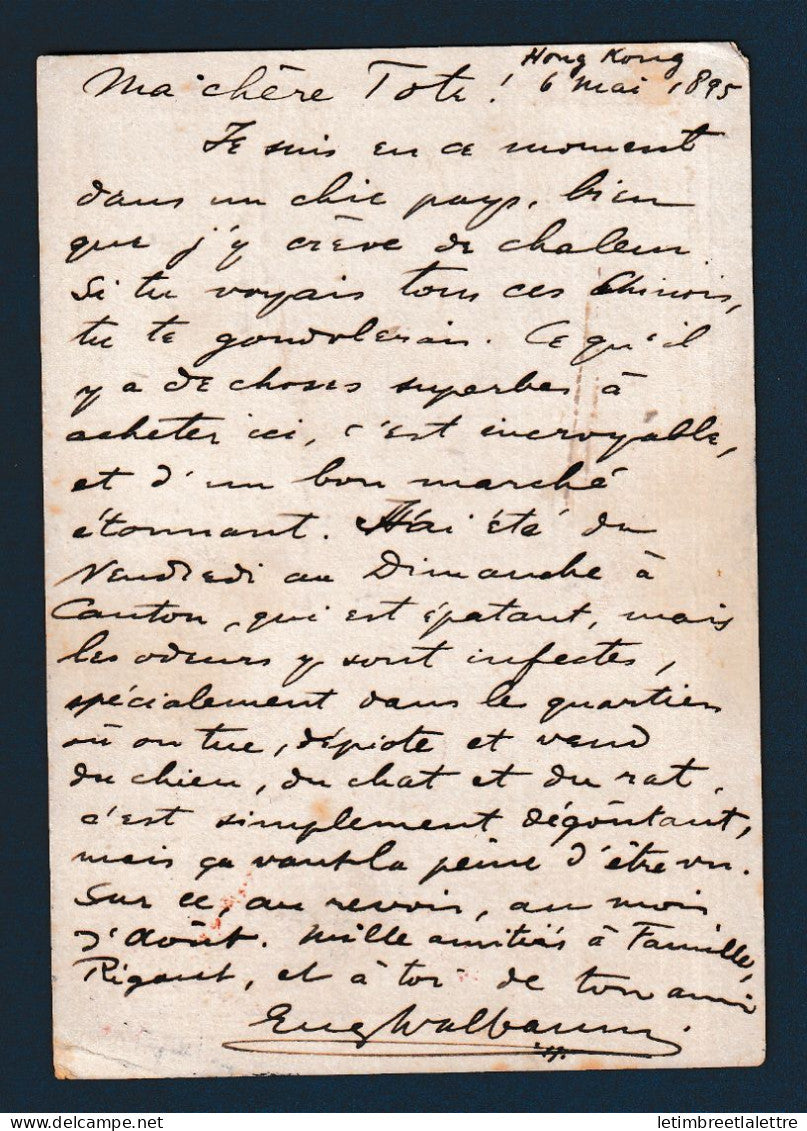 Hong Kong
Ma chère Tote! 6 Mai 1895
Je suis en ce moment
dans un chic pays, bien
que j'y crève de chaleur.
Si tu voyais tous ces Chinois,
tu te gondolerais. Ce qu'il
y a de choses superbes à
acheter ici, c'est incroyable,
et d'un bon marché
étonnant. J'ai été du
Vendredi au Dimanche à
Canton, qui est épatant, mais
les odeurs y sont infectes,
spécialement dans les quartiers
où on tue, dépiote et vend
du chien, du chat et du rat.
c'est simplement dégoûtant,
mais ça vaut la peine d'être vu.
Sur ce, au revoir, au mois
d'août. Mille amitiés à Famille,
Rigaut, et à toi de ton ami
Eug Walbaum
letimbreetlalettre